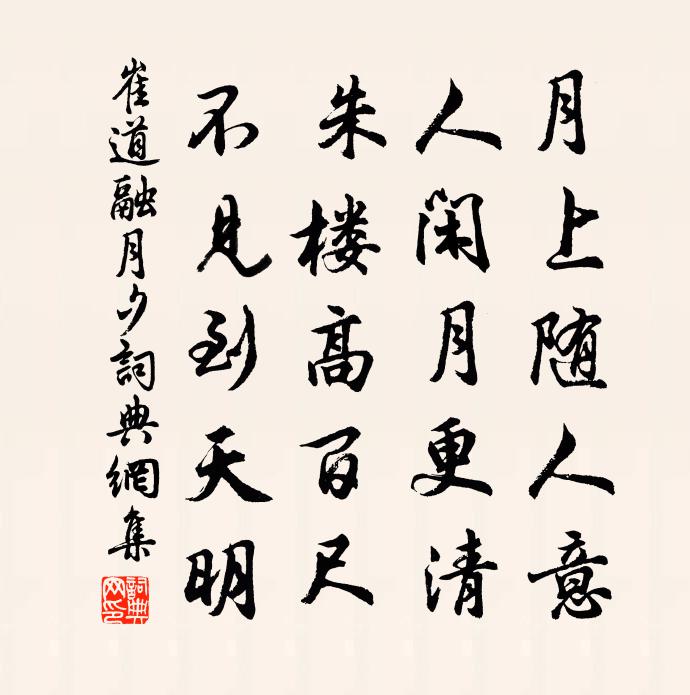 月上随人意
人閑月更清
朱楼髙百尺
不見到天明
崔道融月夕詞典網集
詞典网印